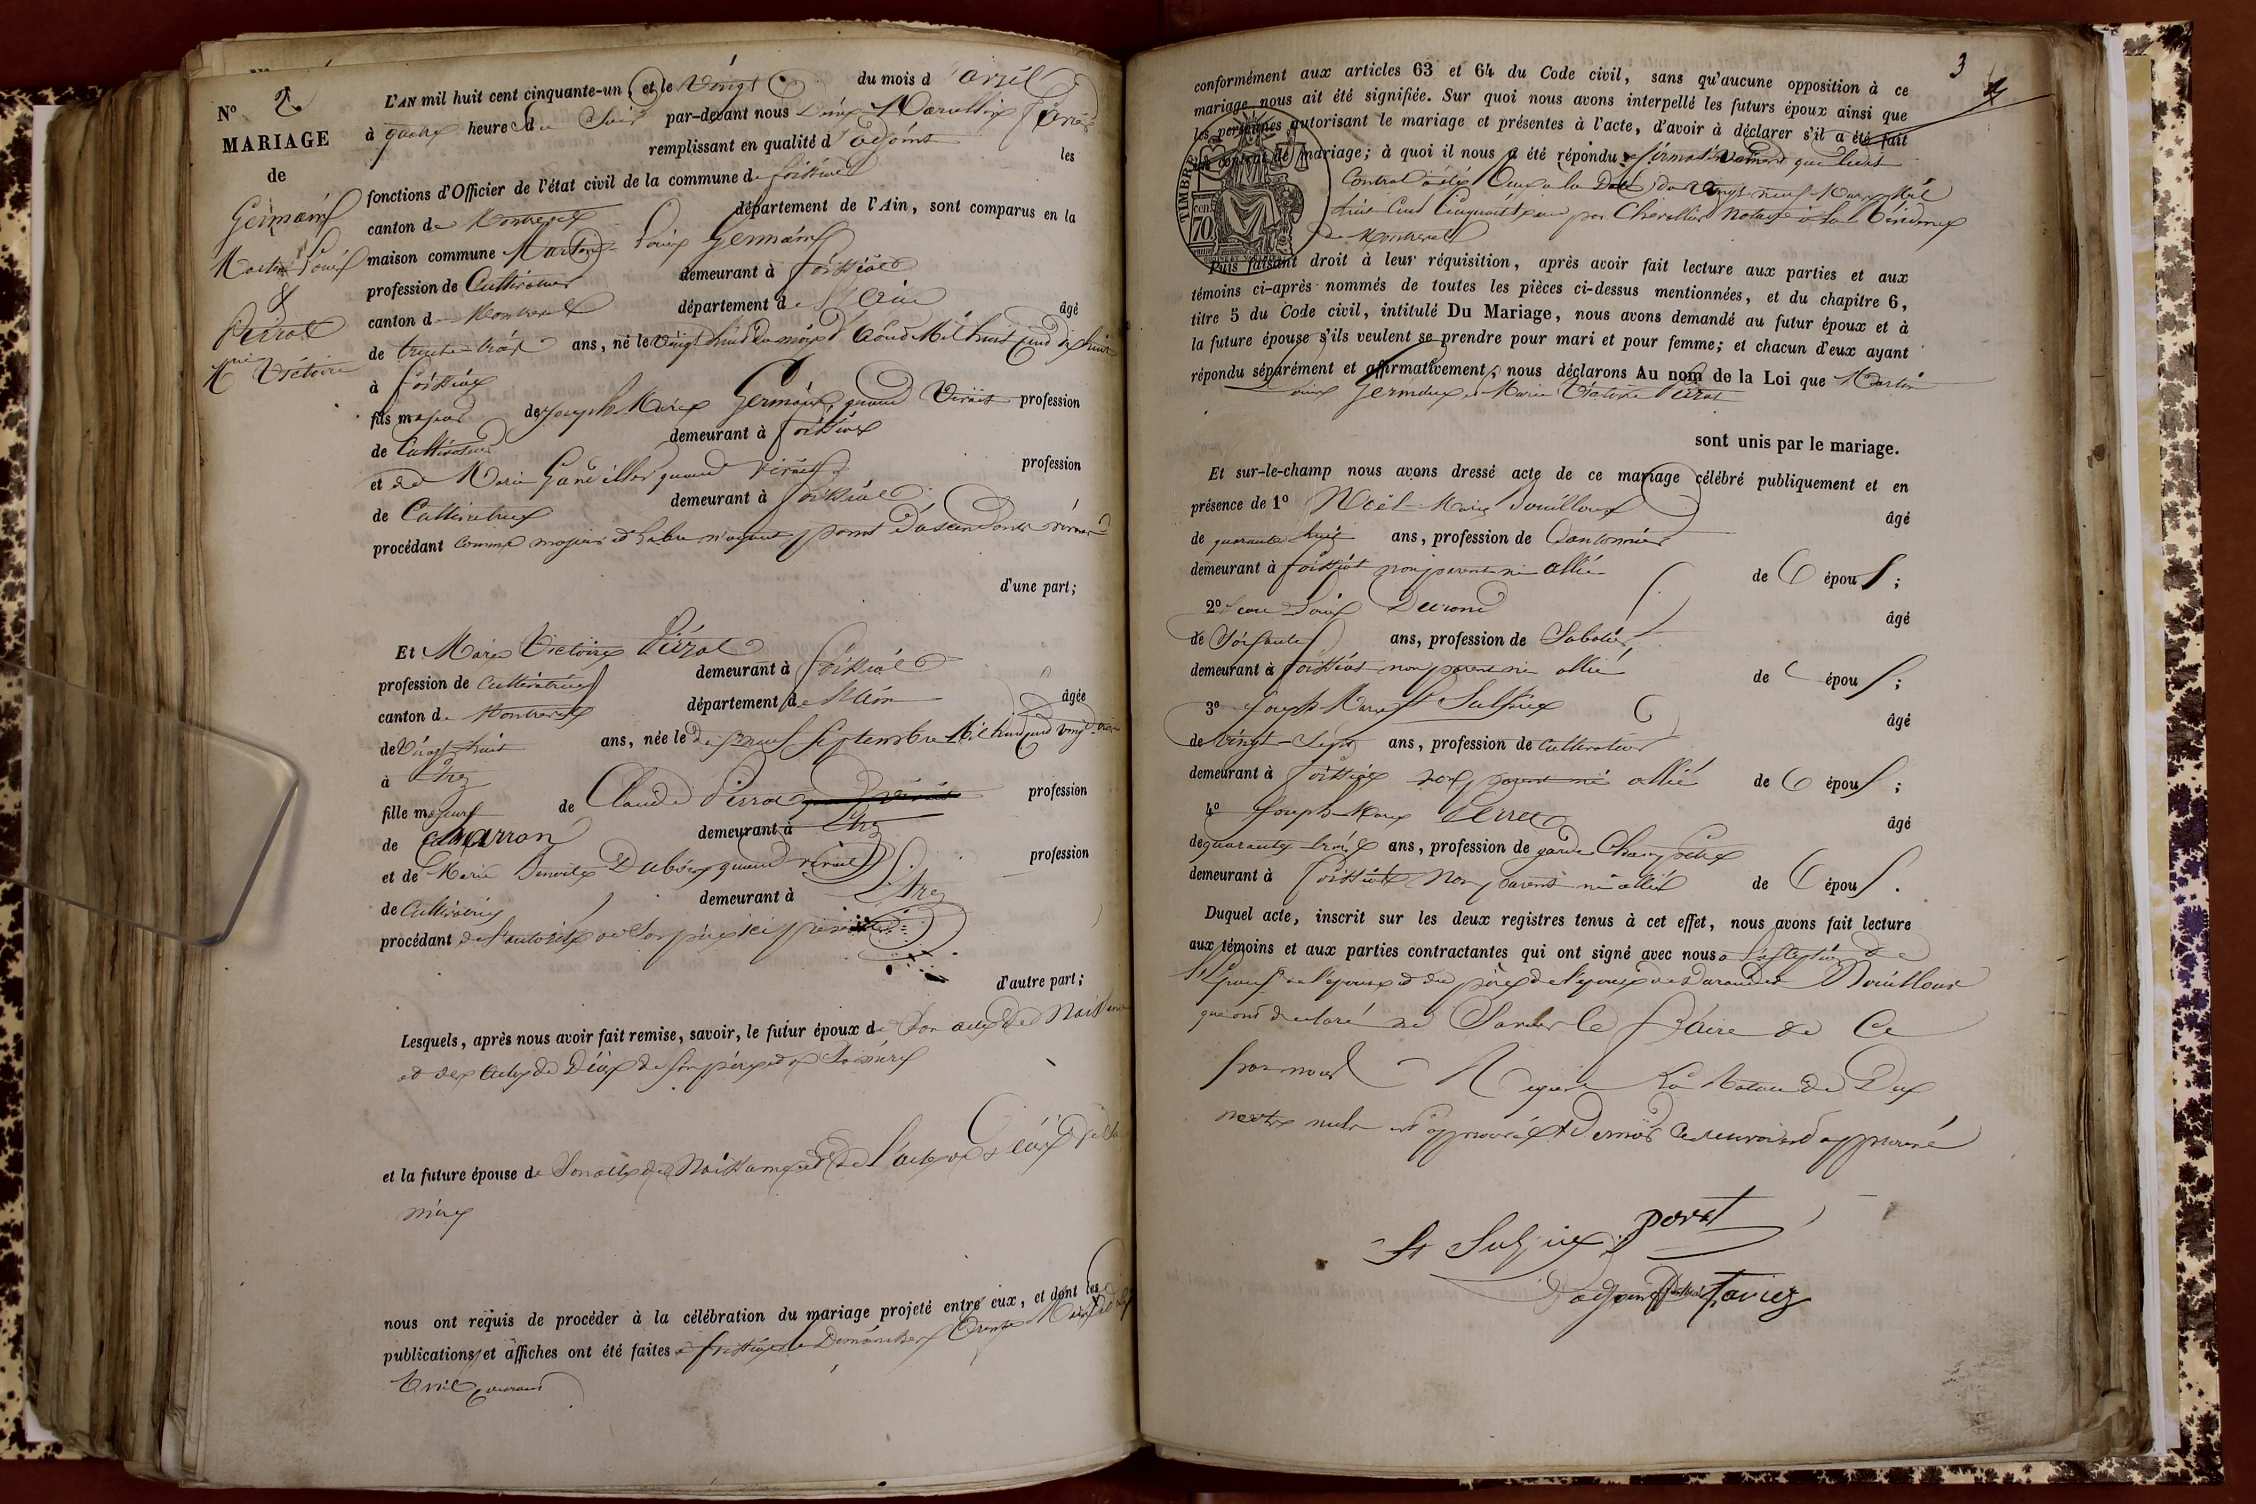 No 2
MARIAGE
de
Germain
Martin Louis
&
Perrat
Mie Victoire
L'AN mil huit cent cinquante-un, et le Vingt du mois d'avril
à quatre heures du Soir par-devant nous
remplissant en qualité d'adjoint les
fonctions d'Officier de l'état civil de la commune de foissiat
canton de Montrevel département de l'Ain, sont comparus en la
maison commune Martin Louis Germain
profession de Cultivateur demeurant à foissiat
canton de Montrevel département de l'ain âgé
de trente-trois ans, né le vingt huit du mois d'Août Mil huit cent dix huit
à foissiat
fils majeur de Joseph Marie Germain, quand vivait profession
de Cultivateur demeurant à foissiat
et de Marie quand vivait profession
de Cultivatrice demeurant à foissiat
procédant comme majeur et libre n'ayant point d'ascendants
d'une part;
Et Marie Victoire Perrat
profession de cultivatrice demeurant à foissiat
canton de Montrevel département de l'Ain âgée
de Vingt-huit ans, née le dix neuf Septembre Mil huit cent vingt
à Etrez
fille majeure de Claude Perrat profession
de charron demeurant à Etrez
et de Marie Dubois quand vivait profession
de cultivatrice demeurant à Etrez
procédant de l'autorité de son père ici présent
d'autre part;
Lesquels, après nous avoir fait remise, savoir, le futur époux de son acte de Naissance
et des actes de Décès de son père et de sa mère
et la future épouse de Son acte de Naissance et de l'acte de Décès de sa
mère
nous ont requis de procéder à la célébration du mariage projeté entre eux, et dont les
publications et affiches ont été faites à foissiat le Dimanche
Avril courant
3
conformément aux articles 63 et 64 du Code civil, sans qu'aucune opposition à ce
mariage nous ait été signifiée. Sur quoi nous avons interpellé les futurs époux ainsi que
les personnes autorisant le mariage et présentes à l'acte, d'avoir à déclarer s'il a été fait
un contrat de mariage; à quoi il nous a été répondu affirmativement que leur
Contrat a été à la Date du Vingt neuf Mars Mil
huit Cent Cinquante un par Chevallier Notaire à la résidence
de Montrevel
TIMBRE
70
Puis faisant droit à leur réquisition, après avoir fait lecture aux parties et aux
témoins ci-après nommés de toutes les pièces ci-dessus mentionnées, et du chapitre 6,
titre 5 du Code civil, intitulé Du Mariage, nous avons demandé au futur époux et à
la future épouse s'ils veulent se prendre pour mari et pour femme; et chacun d'eux ayant
répondu séparément et affirmativement, nous déclarons Au nom de la Loi que Martin
Louis Germain et Marie Victoire Perrat
sont unis par le mariage.
Et sur-le-champ nous avons dressé acte de ce mariage célébré publiquement et en
présence de 1º Noël Marie Bouilloux âgé
de quarante huit ans, profession de Cantonnier
demeurant à foissiat non parent ni allié de époux;
2º Louis âgé
de Soixante ans, profession de Sabotier
demeurant à foissiat non parent ni allié de époux;
3º Joseph Marie Sulpice âgé
de vingt-Sept ans, profession de cultivateur
demeurant à foissiat non parent ni allié de époux;
4º Joseph Marie Perret âgé
de quarante-trois ans, profession de garde Champêtre
demeurant à foissiat Non parent ni allié de époux.
Duquel acte, inscrit sur les deux registres tenus à cet effet, nous avons fait lecture
aux témoins et aux parties contractantes qui ont signé avec nous à l'exception de
l'époux de l'épouse et du père de l'épouse Bouilloux
qui ont déclaré ne Savoir le faire de Ce
par nous Requis La Rature de Deux
mots nuls est approuvée approuvé
Sulpice perret
L'adjoint